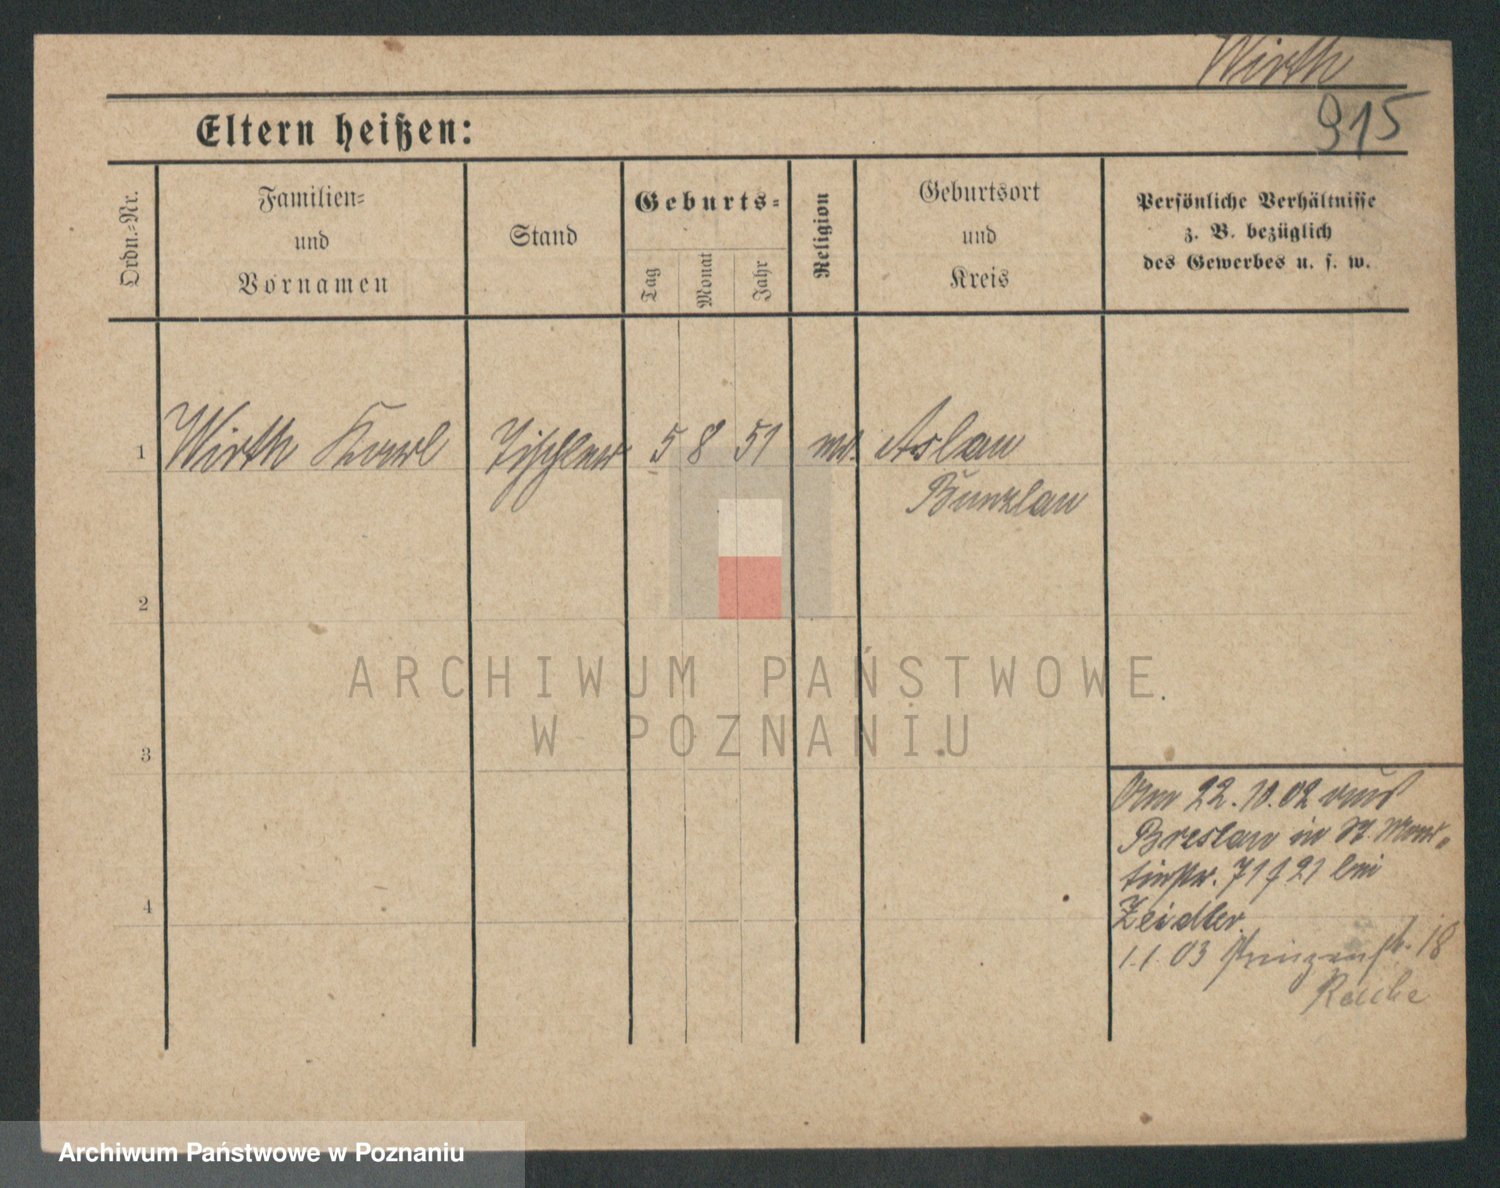 Wirth
915
Eltern heißen:
Ordn.-Nr.
Familien-
und
Vornamen
Stand
Geburts-
Tag
Monat
Jahr
Religion
Geburtsort
und
Kreis
Persönliche Verhältnisse
z. B. bezüglich
des Gewerbes u. s. w.
1 Wirth Karl Tischler 5 8 51 Aslau
Bunzlau
2
ARCHIWUM PAŃSTWOWE
W POZNANIU
3
Am 22.10.02 aus
Breslau in St. Mar-
tinstr. 71 bei
Zeidler.
4
1.1.03 Prinzenstr. 18
Archiwum Państwowe w Poznaniu